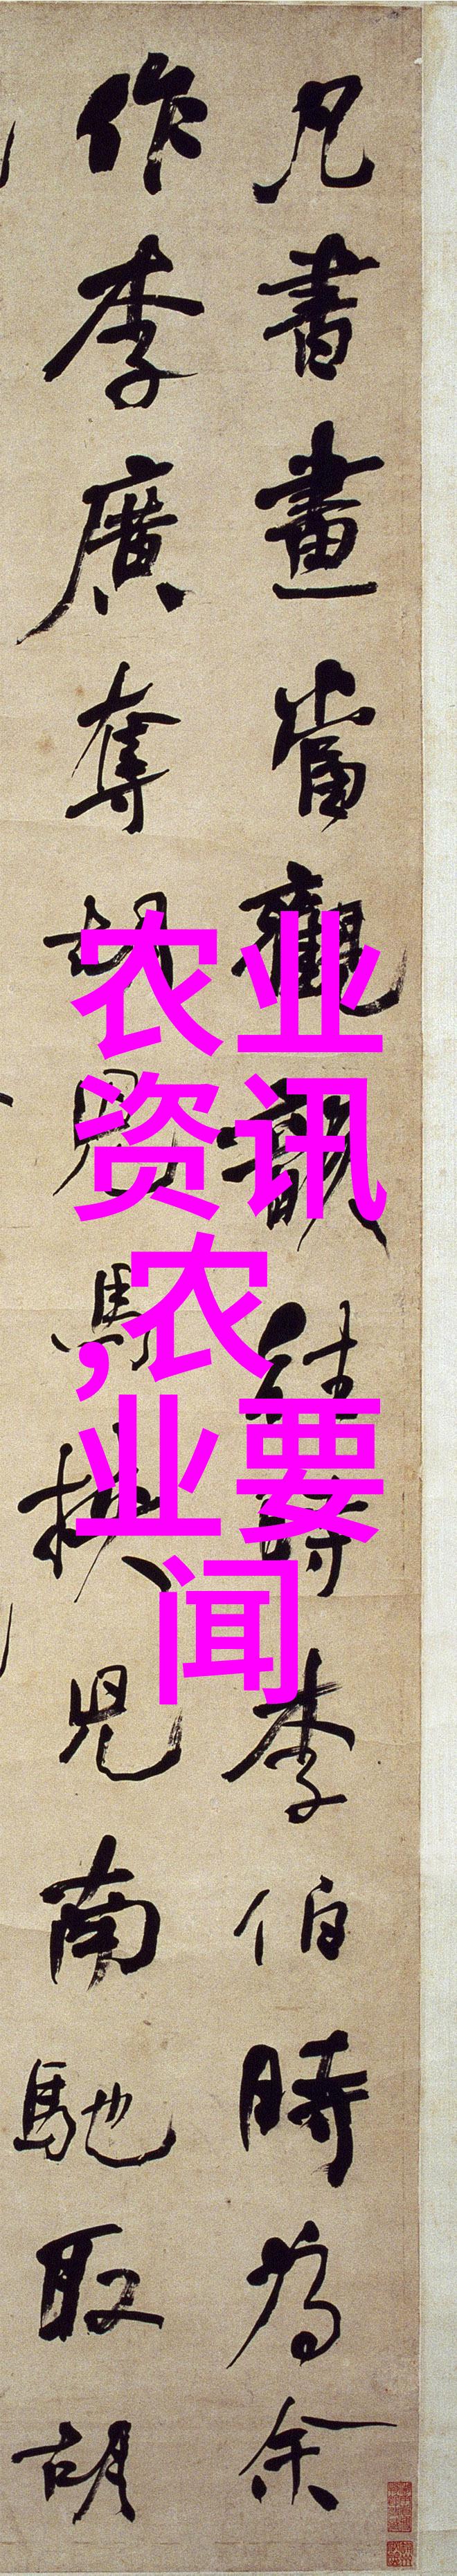 凡書畫當觀韻往時李伯時為余
作李廣奪胡兒馬挾兒南馳取胡
农业
资讯
,农
业要
闻